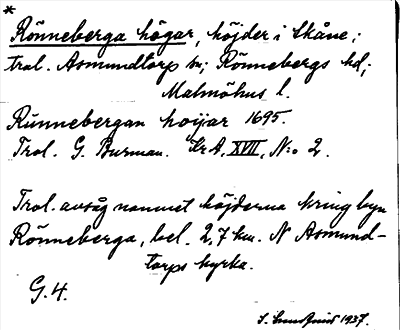 *
Rönneberga högar, höjder i Skåne;
trol. Asmundtorp sn; Rönnebergs hd;
Malmöhus l.
Runnebergan hoijar 1695.
Trol. G. Burman. Kr A, XVII, N:o 2.
Trol. avsåg namnet höjderna kring byn
Rönneberga, bel. 2,7 km. N Asmund-
torps kyrka.
G. 4.
S. Lundquist 1937.